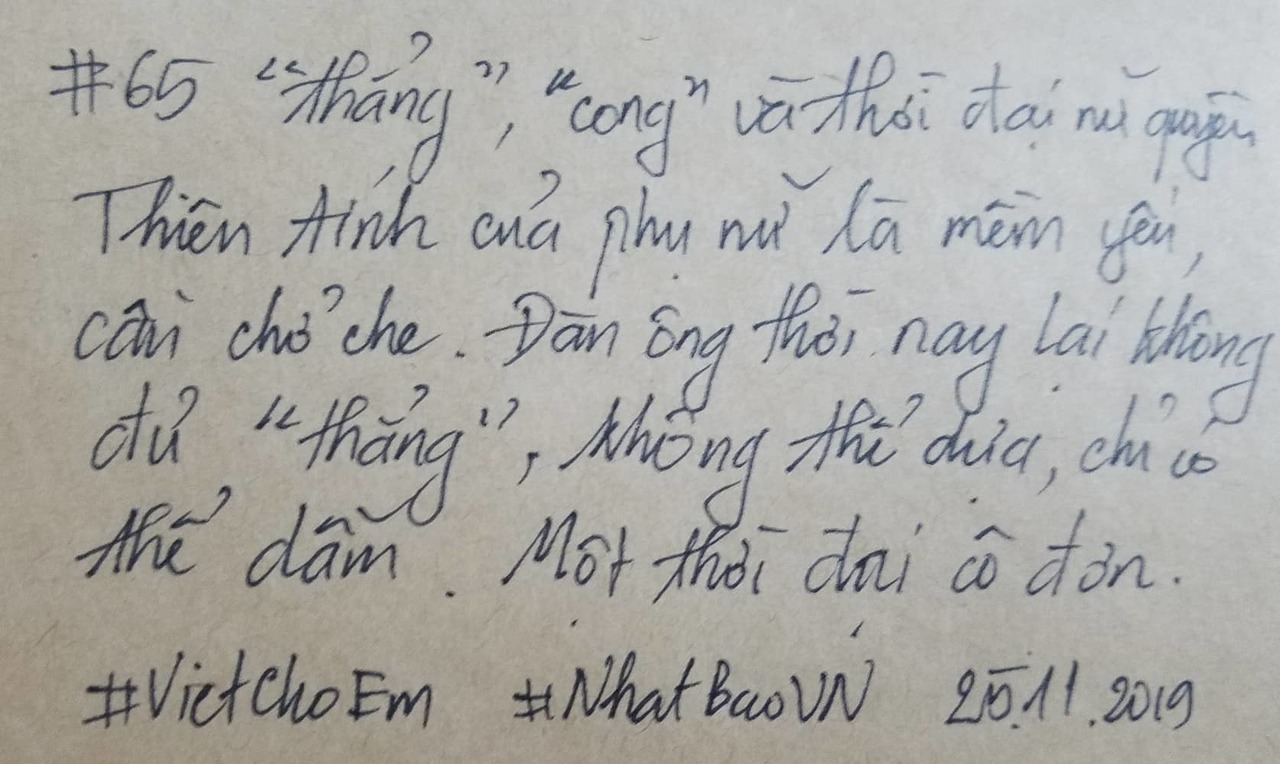 #65 “thẳng”, “cong” và thời đại nữ quyền
Thiên tính của phụ nữ là mềm yếu,
cần chở che. Đàn ông thời nay lại không
đủ “thẳng”, không thể dựa, chỉ có
thể dẫm. Một thời đại cô đơn.
#VietChoEm #NhatBaoVN 25.11.2019